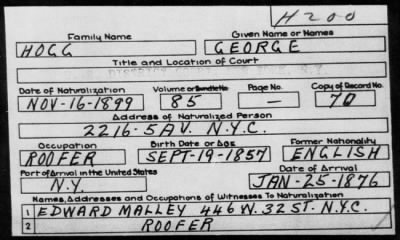 H200
Family Name Given Name or Names
HOGG GEORGE
Title and Location of Court
Date of Naturalization Volume or Bundle No. Page No. Copy of Record No.
NOV-16-1899 85 — 70
Address of Naturalized Person
2216-5 AV. N.Y.C.
Occupation Birth Date or Age Former Nationality
ROOFER SEPT-19-1857 ENGLISH
Port of Arrival in the United States Date of Arrival
N.Y. JAN-25-1876
Names, Addresses and Occupations of Witnesses To Naturalization
1 EDWARD MALLEY 446 W. 32 ST. N.Y.C.
2 ROOFER